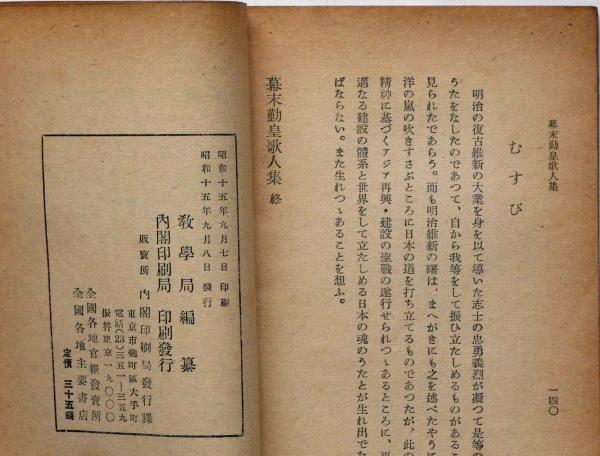 幕末勤皇歌人集
一四〇
むすび
明治の復古維新の大業を身を以て導いた志士の忠勇義烈が凝つて是等の
うたをなしたのであつて、自から我等をして振ひ立たしめるものがあるこ
見られたであらう。而も明治維新の曙は、まへがきにも之を述べたやうに
洋の嵐の吹きすさぶところに日本の道を打ち立てるものであつたが、此の
精神に基づくアジア再興・建設の聖戰の遂行せられつゝあるところに、更
邁なる建設の體系と世界をして立たしめる日本の魂のうたとが生れ出でた
ばならない。また生れつゝあることを想ふ。
幕末勤皇歌人集 終
昭和十五年九月七日 印刷
昭和十五年九月八日 發行
敎學局編纂
內閣印刷局 印刷發行
販賣所 內閣印刷局發行課
東京市麴町區大手町
電話(23)三五一一―三五九
振替東京一九〇〇〇
全國各地官報發賣所
全國各地主要書店
定價 三十五錢